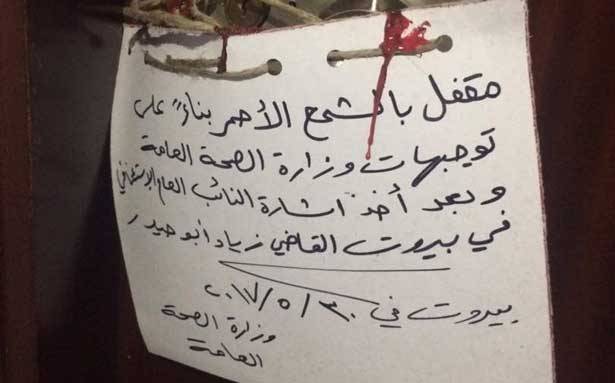 مقفل بالشمع الأحمر بناءً على
توجيهات وزارة الصحة العامة
وبعد أخذ اشارة النائب العام الاستئنافي
في بيروت القاضي زياد أبو حيدر
بيروت في ٣٠/٥/٢٠١٧
وزارة الصحة
العامة